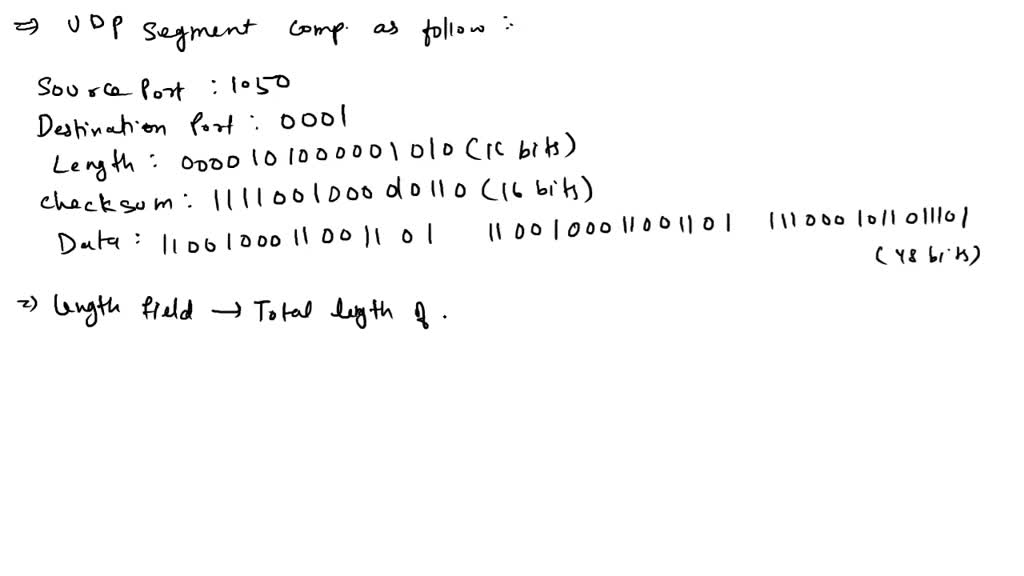 ⇒ UDP Segment comp. as follow :-
Source Port : 1050
Destination Port : 0001
Length : 0000101000001010 (16 bits)
checksum : 1111001000d0110 (16 bits)
Data : 1100100011001101 1100100011001101 1110001011011101 (48 bits)
=) length field → Total legth of .